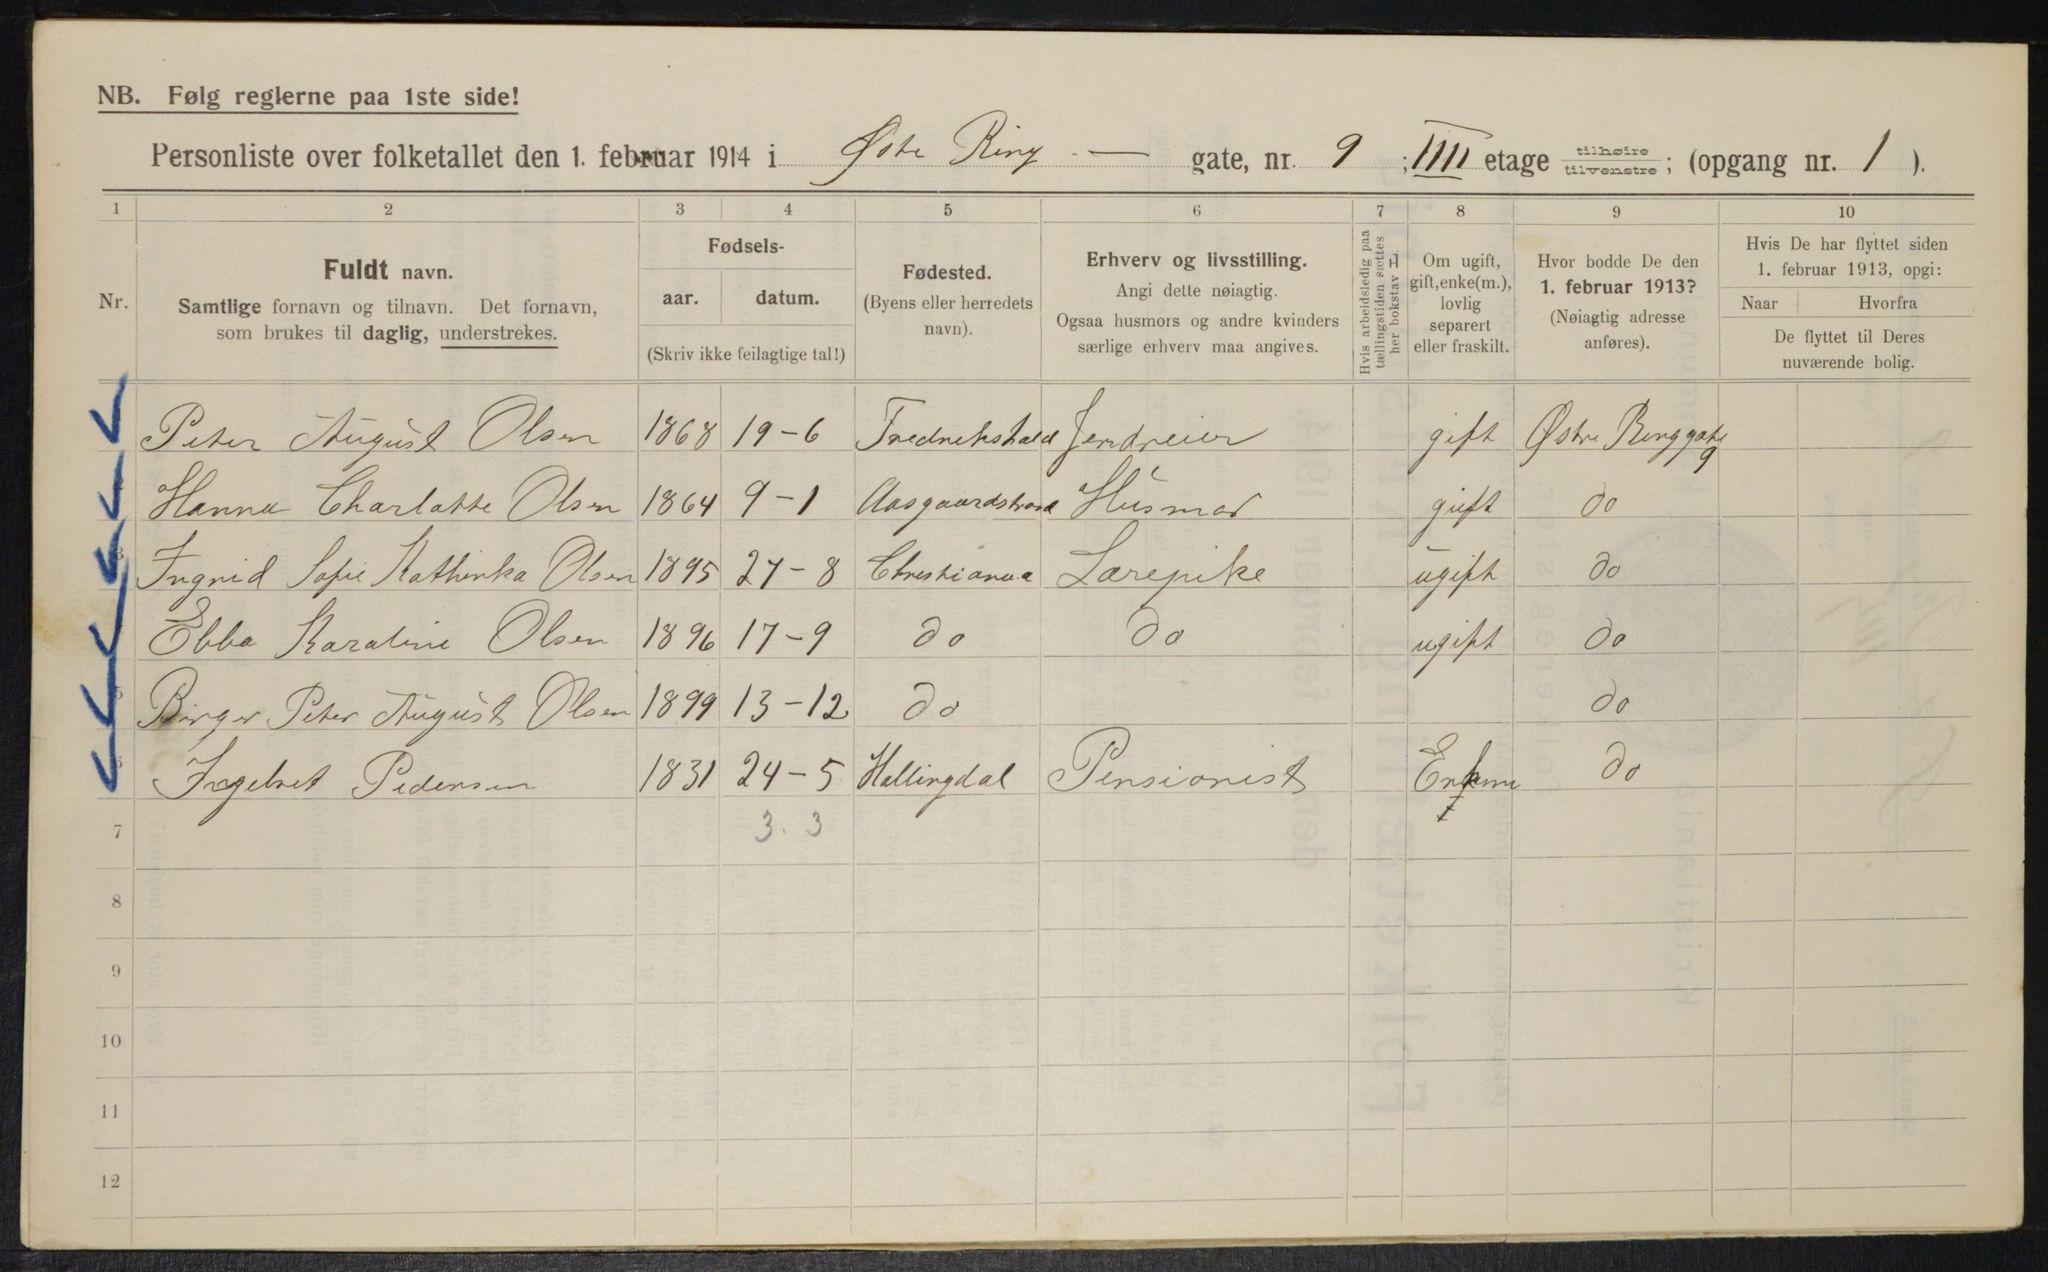 NB. Følg reglerne paa 1ste side!
Personliste over folketallet den 1. februar 1914 i Østre Ring — gate, nr. 9 ; IIII etage tilhøire/tilvenstre ; (opgang nr. 1 ).
1 2 3 4 5 6 7 8 9 10
Nr.
Fuldt navn.
Samtlige fornavn og tilnavn. Det fornavn,
som brukes til daglig, understrekes.
Fødsels-
aar. datum.
(Skriv ikke feilagtige tal!)
Fødested.
(Byens eller herredets
navn).
Erhverv og livsstilling.
Angi dette nøiagtig.
Ogsaa husmors og andre kvinders
særlige erhverv maa angives.
Hvis arbeidsledig paa
tællingstiden sættes
her bokstav L
Om ugift,
gift, enke(m.),
lovlig
separert
eller fraskilt.
Hvor bodde De den
1. februar 1913?
(Nøiagtig adresse
anføres).
Hvis De har flyttet siden
1. februar 1913, opgi:
Naar Hvorfra
De flyttet til Deres
nuværende bolig.
Peter August Olsen 1868 19-6 Fredrekshald Jerdreier gift Østre Ringgate 9
Hanna Charlotte Olsen 1864 9-1 Aasgaardstrand Husmor gift do
3 Ingrid Sofie Kathinka Olsen 1895 27-8 Christiania Lærepike ugift do
Ebba Karaline Olsen 1896 17-9 do do ugift do
5 Birger Peter August Olsen 1899 13-12 do do
6 Ingebret Pedersen 1831 24-5 Hallingdal Pensionist Enkem do
7 3.3
8
9
10
11
12